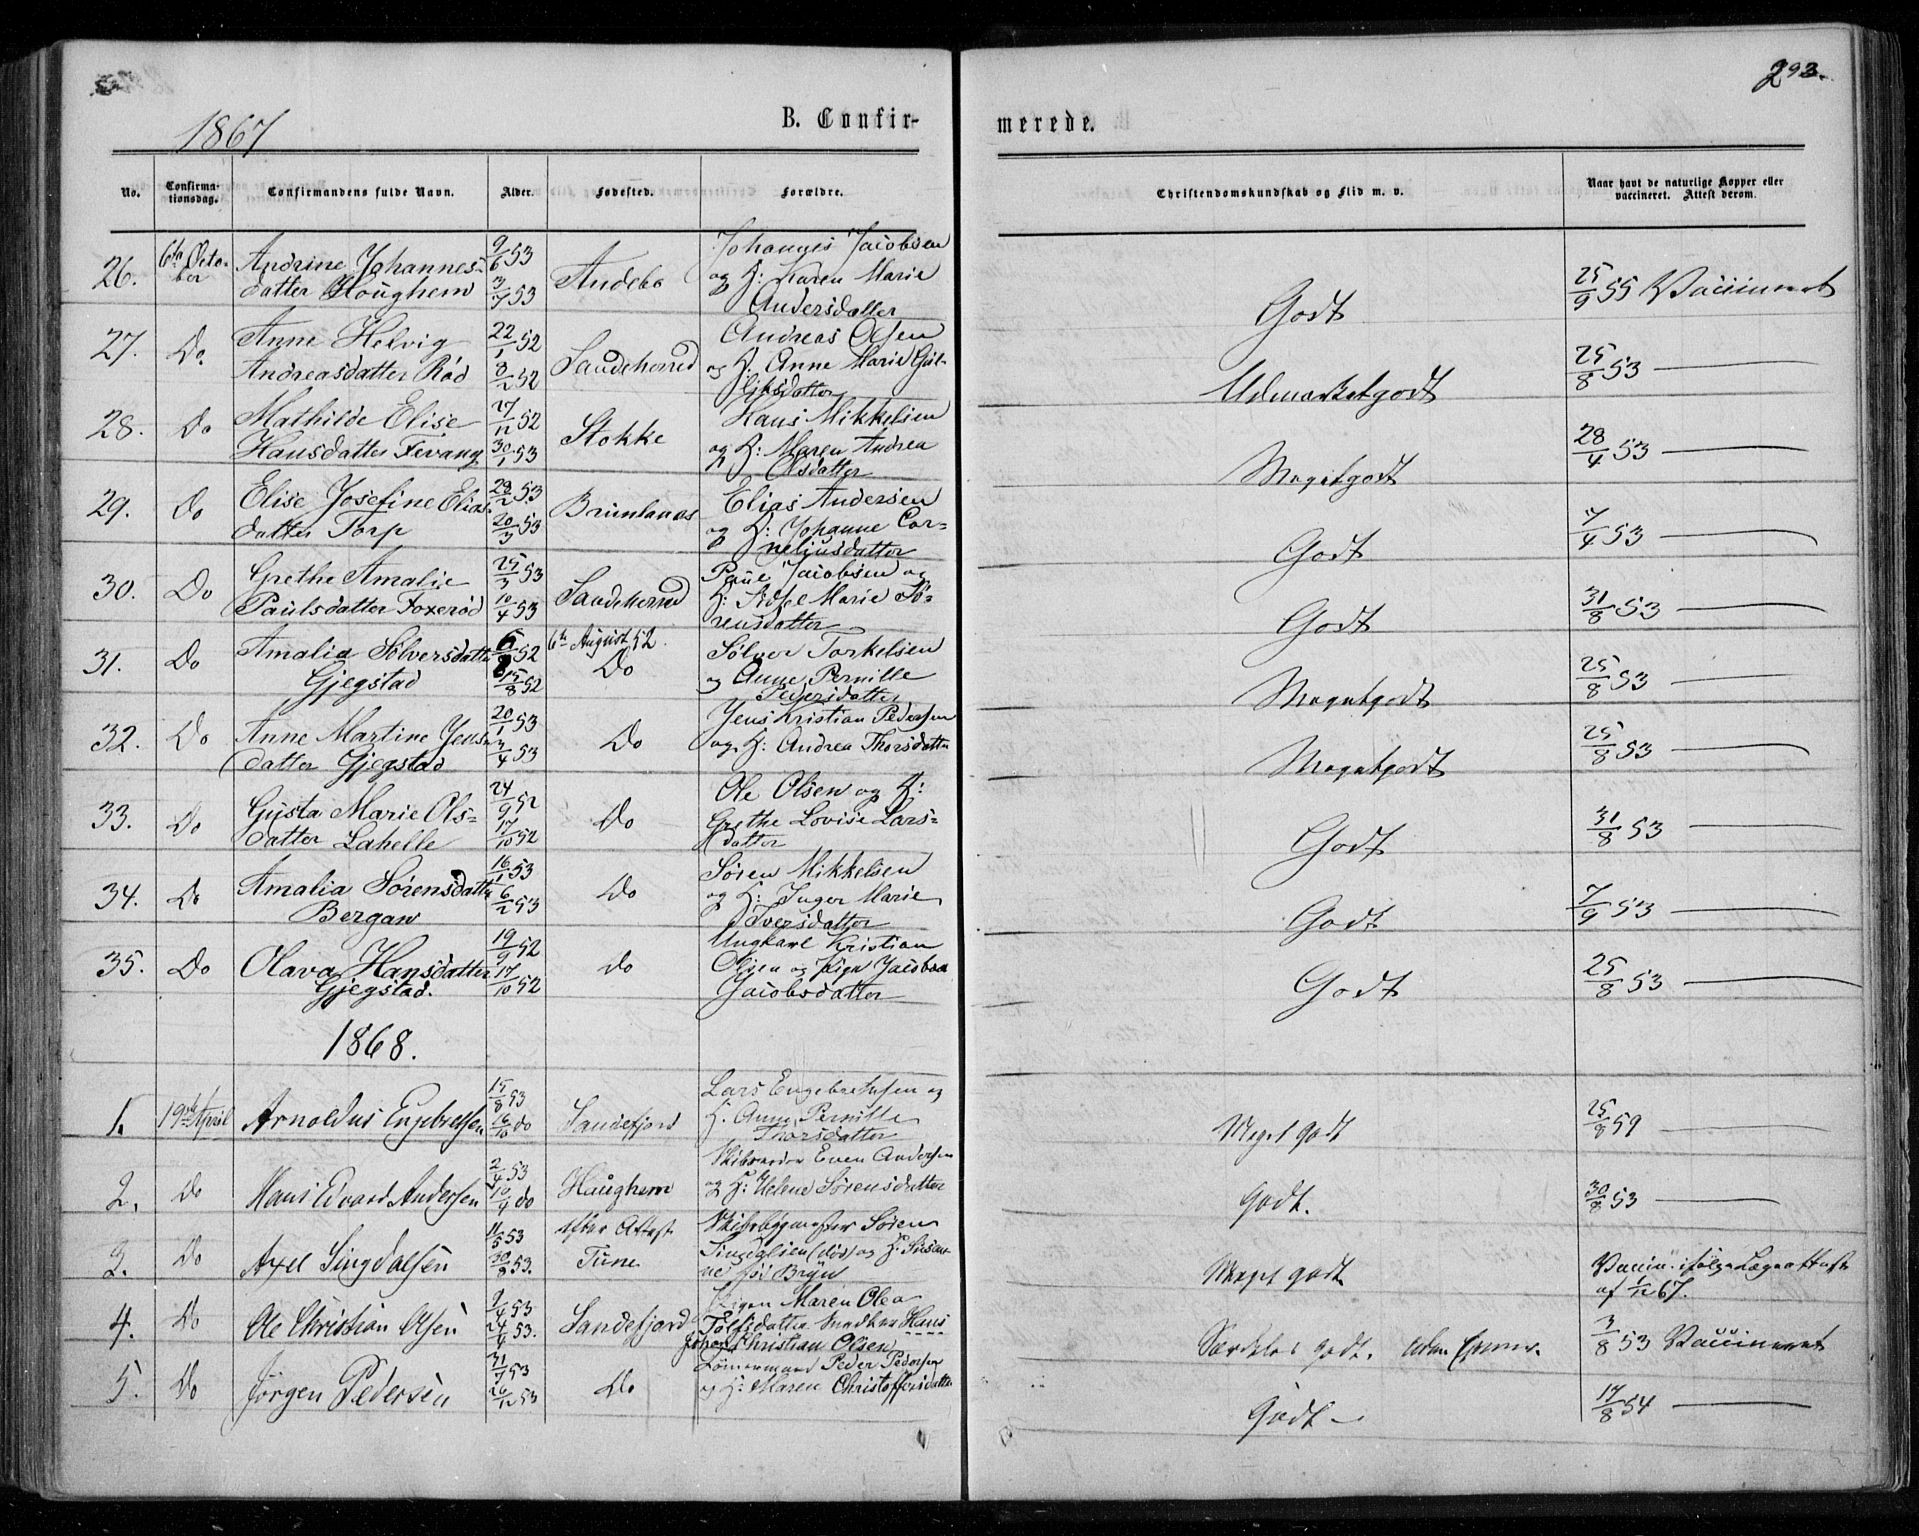 293.
1867
B. Confir-
merede.
No.
Confirma-
tionsdag.
Confirmandens fulde Navn.
Alder.
Fødested.
Forældre.
Christendomskundskab og Flid m. v.
Naar havt de naturlige Kopper eller
vaccineret. Attest derom.
26. 6te Octo- Andrine Johannes- 9/6 53 Andebo Johannes Jacobsen
ber datter Houghem 3/7 53 og H: Karen Marie
Andersdatter
Godt 25/9 55 Vaccineret
27. Do Anne Helvig 22/1 52 Sandeherred Andreas Olsen
Andreasdatter Rød 8/2 52 og H. Anne Marie Gul-
liksdatter
Udmærketgodt 25/8 53
28. Do Mathilde Elise 27/12 52 Stokke Hans Mikkelsen
Hansdatter Fevang 30/1 53 og H: Maren Andrea
Olsdatter
Megetgodt 28/4 53
29. Do Elise Josefine Elias- 28/2 53 Brunlanæs Elias Andersen
datter Torp 20/3 53 og H: Johanne Cor-
neliusdatter
Godt 7/4 53
30. Do Grethe Amalie 25/3 53 Sandeherred Jacobsen og
Paulsdatter Foxerød 10/4 53 H: Marie Sø-
rensdatter
Godt 31/8 53
31. Do Amalia Sølversdatter 6/8 52 6te August 52. Sølver Torkelsen
Gjegstad 15/8 52 Do og Anne Pernille
Pedersdatter
Megetgodt 25/8 53
32. Do Anne Martine Jens- 20/1 53 Do Jens Kristian Pedersen
datter Gjegstad 3/4 53 og H: Andrea Thorsdatter
Megetgodt 25/8 53
33. Do Gusta Marie Ols- 24/9 52 Do Ole Olsen og H:
datter Lahelle 17/10 52 Grethe Lovise Lars-
datter
Godt 31/8 53
34. Do Amalia Sørensdatter 16/1 53 Do Søren Mikkelsen
Bergan 6/2 53 og H: Inger Marie
Iversdatter
Godt 7/9 53
35. Do Olava Hansdatter 19/9 52 do Ungkarl Kristian
Gjegstad. 17/10 52 Olsen og Pige Jacobea
Jacobsdatter
Godt 25/8 53
1868.
1. 19de April Arnoldus Engebretsen 15/8 53 Sandefjord Lars Engebretsen og
16/10 do H. Anne Pernille
Thorsdatter
Meget godt 25/8 59
2. Do Hans Edvard Andersen 2/4 53 Haughem Even Andersen
10/4 do og H: Helene Sørensdatter
Godt. 30/8 53
3. Do Axel Singdalsen 11/5 53 efter Attest Skibsbygmester Søren
30/8 53. Tune Singdalsen (død) og H. Susan-
ne
Meget godt Vaccin. ifølge Lægeattest
af 1/12 67.
4. Do Ole Christian Olsen 9/4 53 Sandefjord Pigen Maren Olea
24/4 53. Snedker Hans
Johan Christian Olsen
Særdeles godt. 3/8 53 Vaccineret
5. Do Jörgen Pedersen 31/7 53 Do Tömmermand Peder Pedersen
26/12 53 og H: Maren Christoffersdatter
Godt 17/8 54